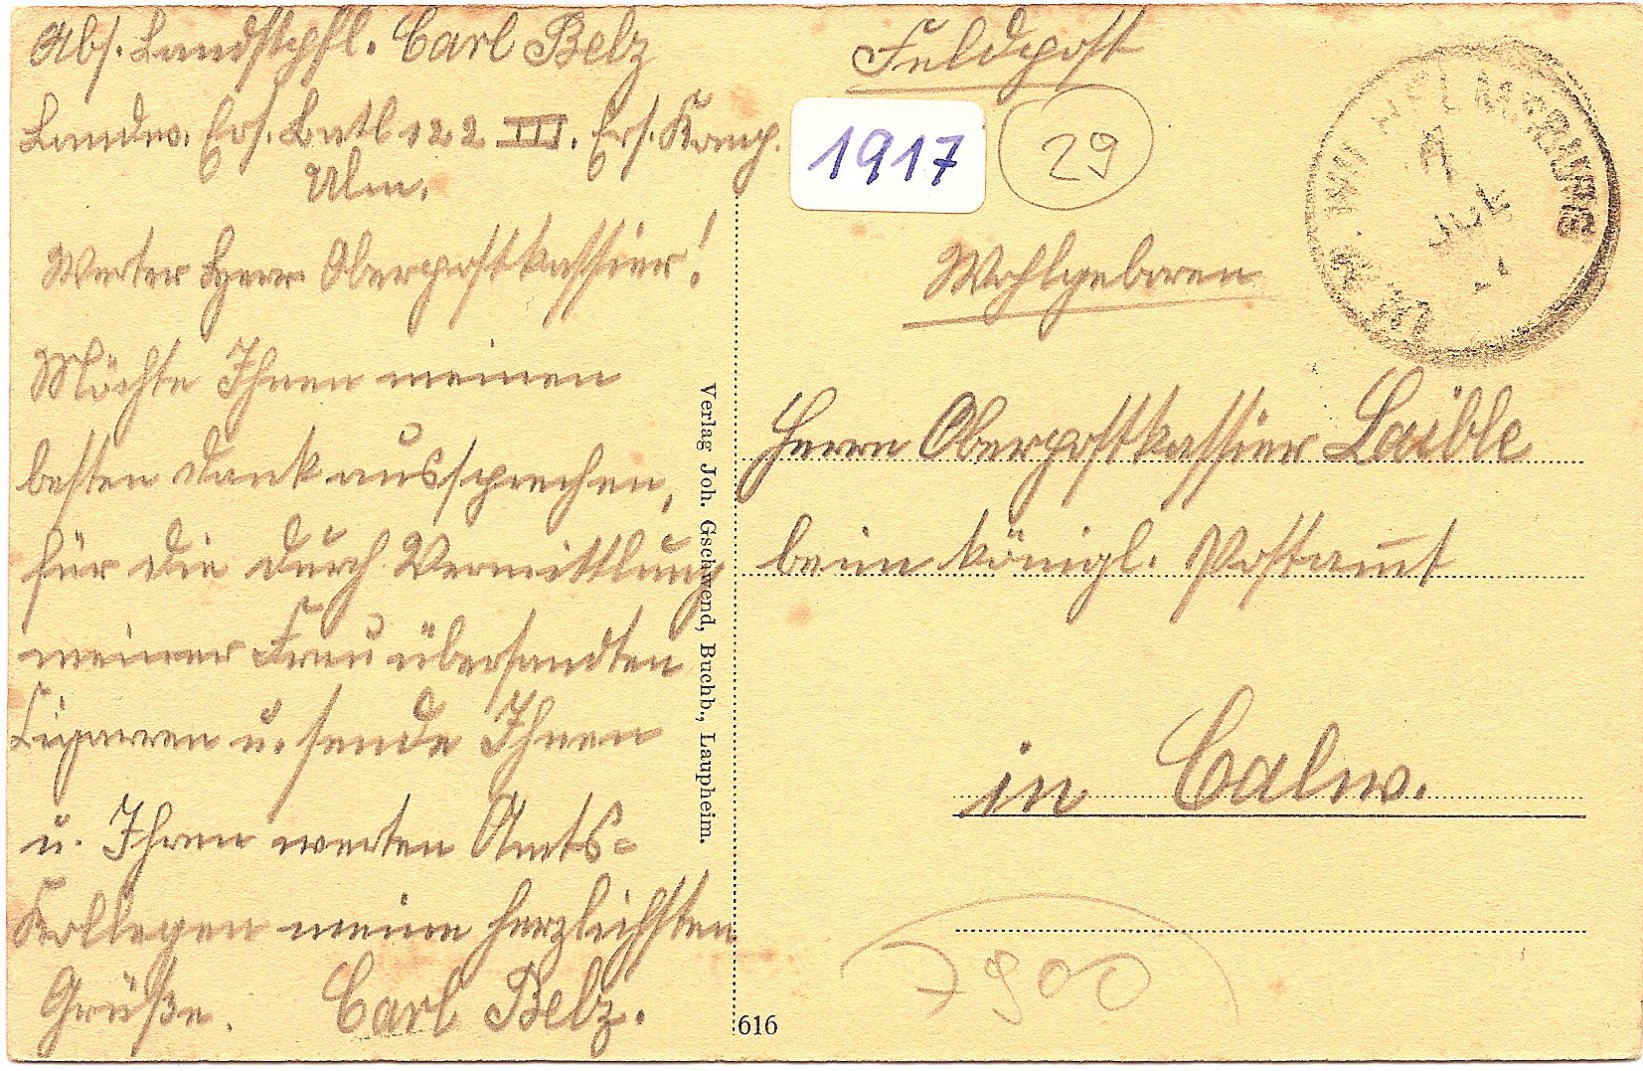 Abs. Landstpfl. Carl Belz
Landw. Ers. Batl 122 III. Ers. Komp.
Ulm.
Werter Herr Oberpostkassier!
Möchte Ihnen meinen
besten Dank aussprechen,
für die durch Vermittlung
meiner Frau übersandten
Zigarren u. sende Ihnen
u. Ihren werten Amts-
Kollegen meine herzlichsten
Grüße. Carl Belz.
Verlag Joh. Gschwend, Buchb., Laupheim.
616
Feldpost
1917
29
Wohlgeboren
Herrn Oberpostkassier Laible
beim königl. Postamt
in Calw.
7900